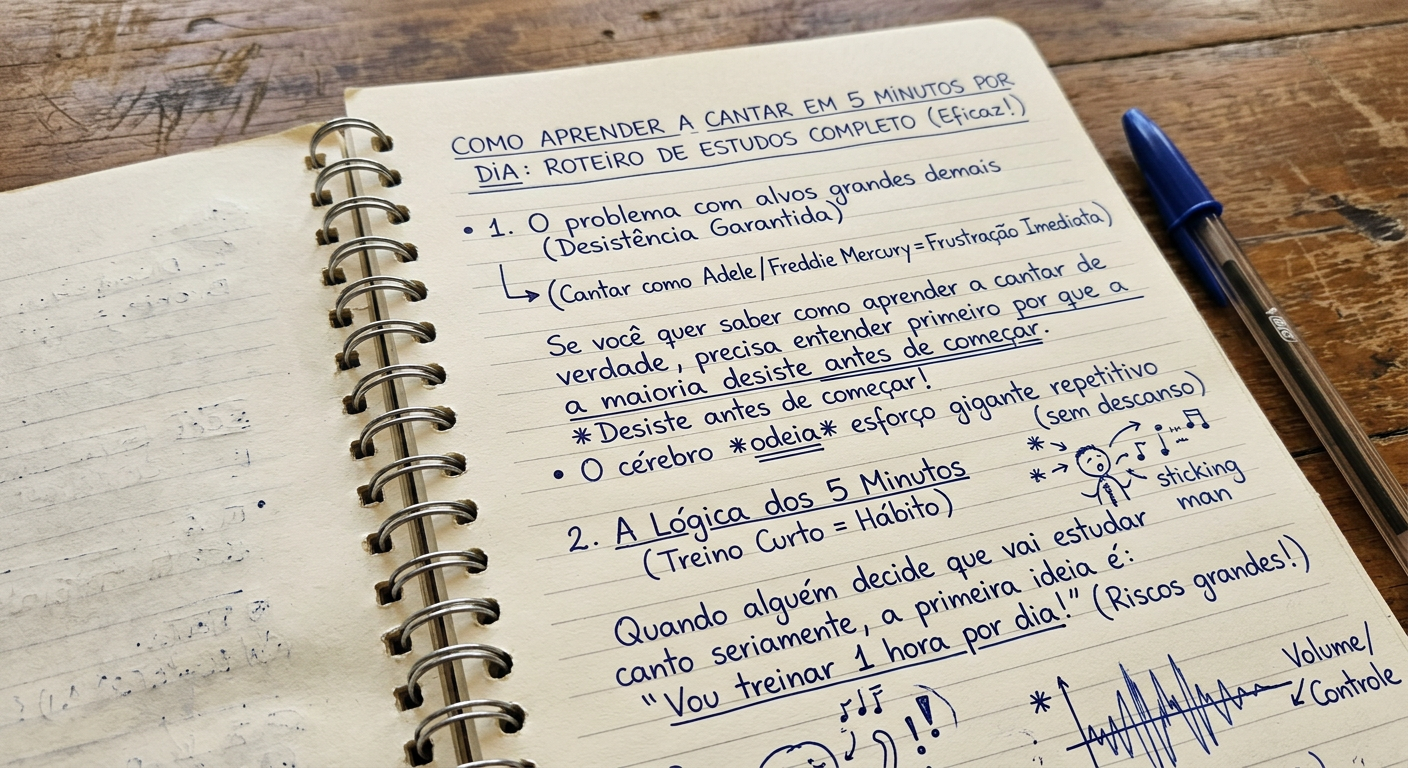 COMO APRENDER A CANTAR EM 5 MINUTOS POR
DIA: ROTEIRO DE ESTUDOS COMPLETO (Eficaz!)
• 1. O problema com alvos grandes demais
(Desistência Garantida)
(Cantar como Adele/Freddie Mercury=Frustração Imediata)
Se você quer saber como aprender a cantar de
verdade, precisa entender primeiro por que a
a maioria desiste antes de começar.
*Desiste antes de começar!
• O cérebro *odeia* esforço gigante repetitivo
(sem descanso)
sticking
man
2. A Lógica dos 5 Minutos
(Treino Curto = Hábito)
Quando alguém decide que vai estudar
canto seriamente, a primeira ideia é:
"Vou treinar 1 hora por dia!" (Riscos grandes!)
Volume/
Controle
BIC